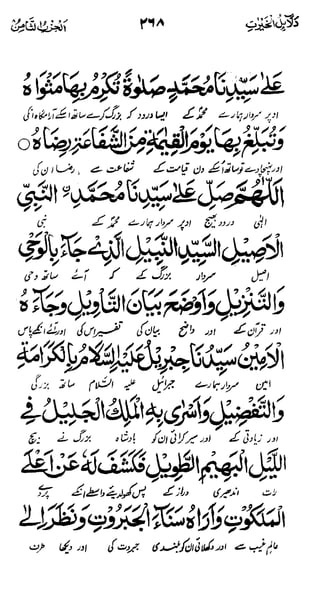 دلائل الخیرات ۲۶۸ الحزب الثامن
عَلٰى سَيِّدِنَا مُحَمَّدٍ صَلٰوةً تُكْرِمُ بِهَا مَثْوَاهُ
اوپر سردار ہمارے محمدؐ کے ایسا درود کہ بزرگ کرے تو ساتھ اسکے آرامگاہ انکی
وَتُبَلِّغُ بِهَا يَوْمَ الْقِيٰمَةِ مِنَ الشَّفَاعَةِ رِضَاهُ ○
اور پہنچادے تو ساتھ اسکے دن قیامت کے شفاعت سے رضا ان کی
اَللّٰهُمَّ صَلِّ عَلٰى سَيِّدِنَا مُحَمَّدِ ِۨ النَّبِيِّ
الٰہی درود بھیج اوپر سردار ہمارے محمدؐ کے نبی
الْاَصِيْلِ السَّيِّدِ النَّبِيْلِ الَّذِيْ جَآءَ بِالْوَحْيِ
اصیل سردار بزرگ کے کہ آئے ساتھ وحی
وَالتَّنْزِيْلِ وَاَوْضَحَ بَيَانَ التَّاْوِيْلِ وَجَآءَهُ
اور قرآن کے اور واضح بیان کی تفسیر اس کی اور آئے انکے پاس
الْاَمِيْنُ سَيِّدُنَا جِبْرِيْلُ عَلَيْهِ السَّلَامُ بِالْكَرَامَةِ
امین سردار ہمارے جبرائیل علیہ السّلام ساتھ بزرگی
وَالتَّفْضِيْلِ وَاَسْرٰى بِهِ الْمَلِكُ الْجَلِيْلُ فِي
اور زیادتی کے اور سیر کرائی ان کو بادشاہ بزرگ نے بیچ
اللَّيْلِ الْبَهِيْمِ الطَّوِيْلِ فَكَشَفَ لَهُ عَنْ اَعْلَى
رات اندھیری دراز کے پس کھول دیئے واسطے انکے پردے
الْمَلَكُوْتِ وَاَرَاهُ سَنَآءَ الْجَبَرُوْتِ وَنَظَرَ اِلٰى
عالم غیب سے اور دکھلائی ان کو بلندی جبروت کی اور دیکھا طرف